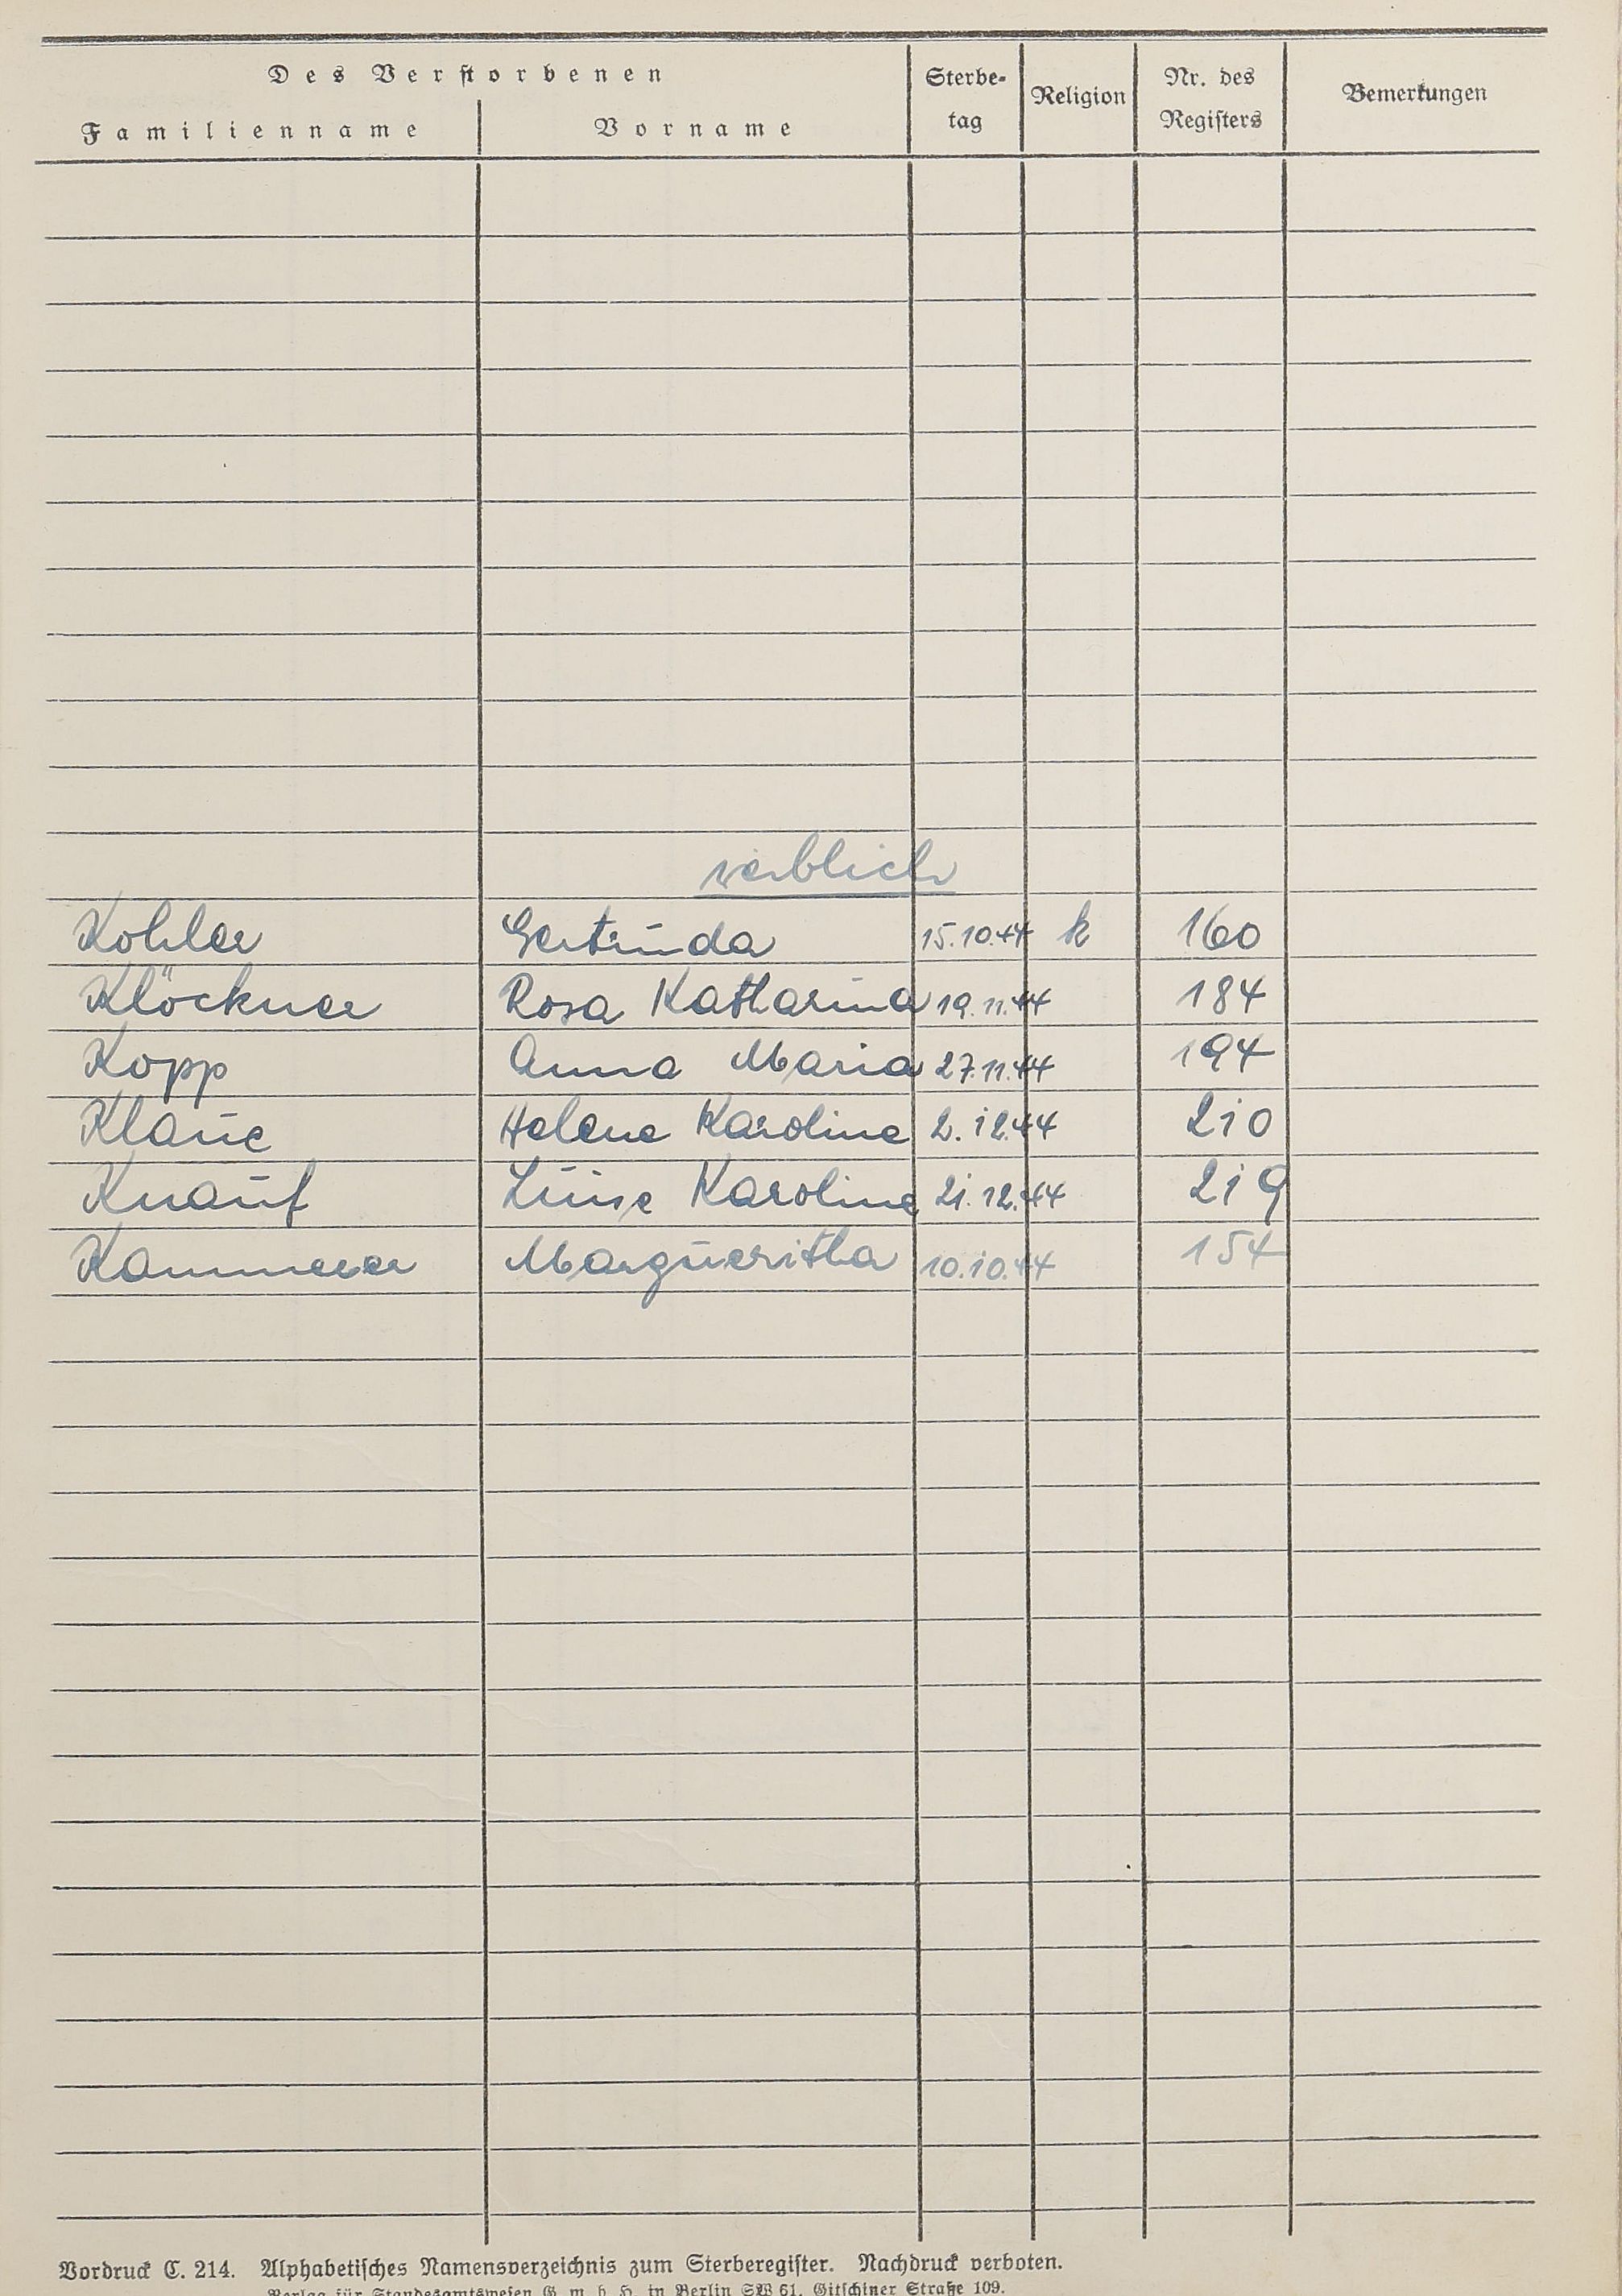 Des Verstorbenen
Familienname Vorname Sterbe-tag Religion Nr. des Registers Bemerkungen
weiblich
Kohler Gertruda 15.10.44 k 160
Klöckner Rosa Katharina 19.11.44 184
Kopp Anna Maria 27.11.44 194
Klaue Helene Karoline 2.12.44 210
Knauf Luise Karoline 21.12.44 219
Kammerer Margueritha 10.10.44 154
Vordruck C. 214. Alphabetisches Namensverzeichnis zum Sterberegister. Nachdruck verboten.
Verlag für Standesamtswesen G. m. b. H. in Berlin SW 61, Gitschiner Straße 109.